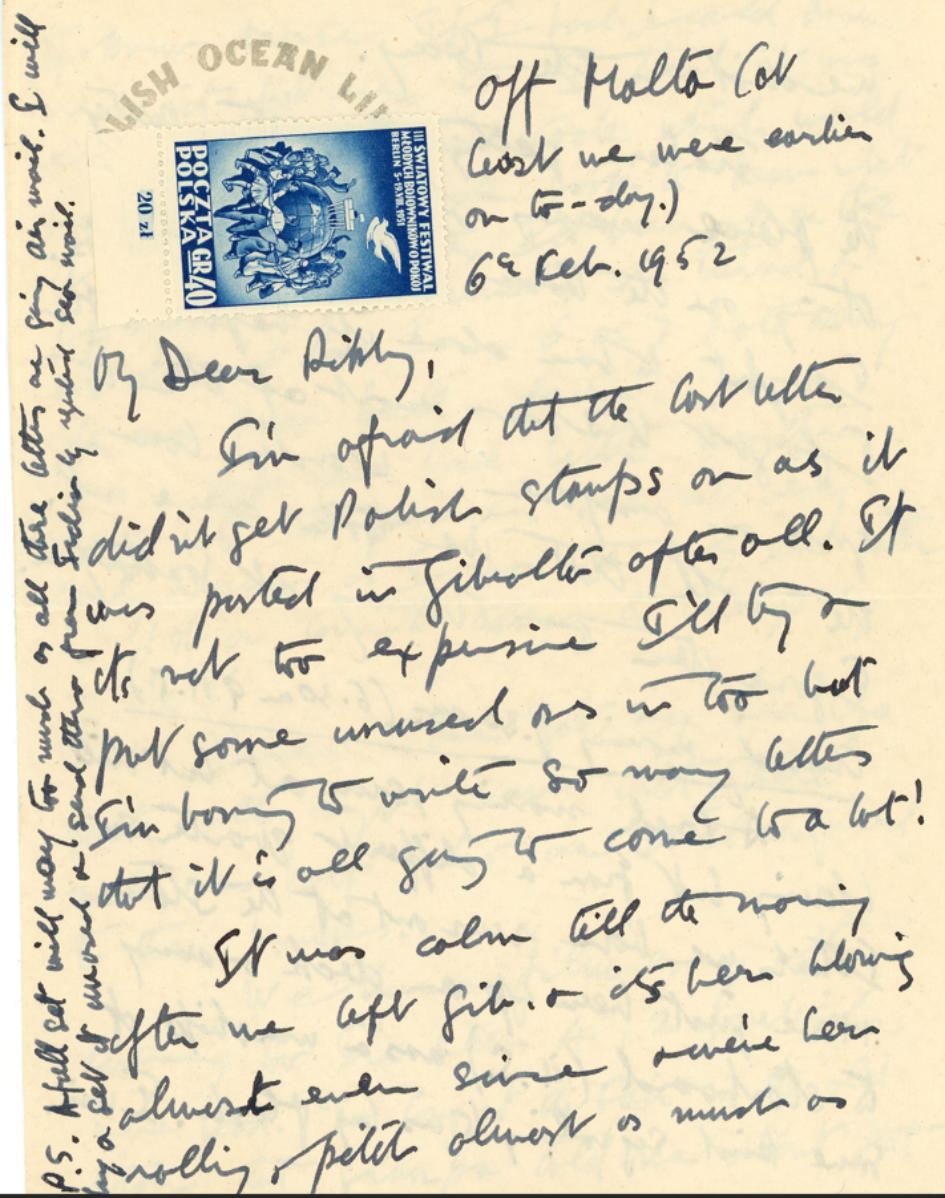 POLISH OCEAN LIN
III ŚWIATOWY FESTIWAL
MŁODYCH BOJOWNIKÓW O POKÓJ
BERLIN 5-19.VIII.1951
POCZTA GR 40
POLSKA
20 zł
Off Malta (at
least we were earlier
on to-day.)
6th Feb. 1952
My Dear
I'm afraid that the last letter
didn't get Polish stamps on as it
was posted in Gibraltar after all. If
its not too expensive I'll try &
put some unused ones in too but
I'm having to write so many letters
that it is all going to come to a lot!
It was calm till the morning
after we left Gib. & its been blowing
almost ever since & we've been
rolling & pitch almost as much as
P.S. A full set will way too much as all these letters are going air mail. I will
try & get it unused & send them from India by registered sea mail.